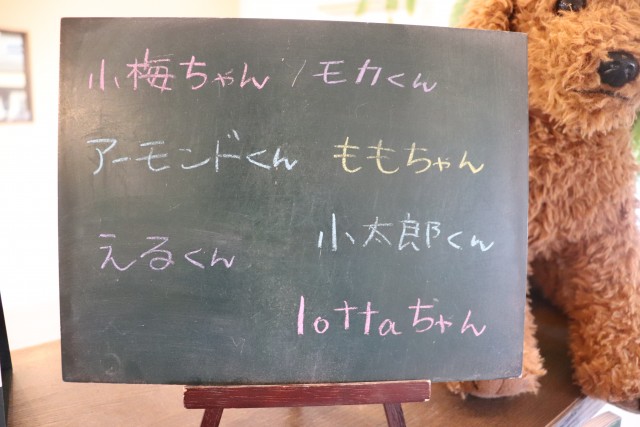 小梅ちゃん / モカくん
アーモンドくん ももちゃん
えるくん 小太郎くん
lottaちゃん